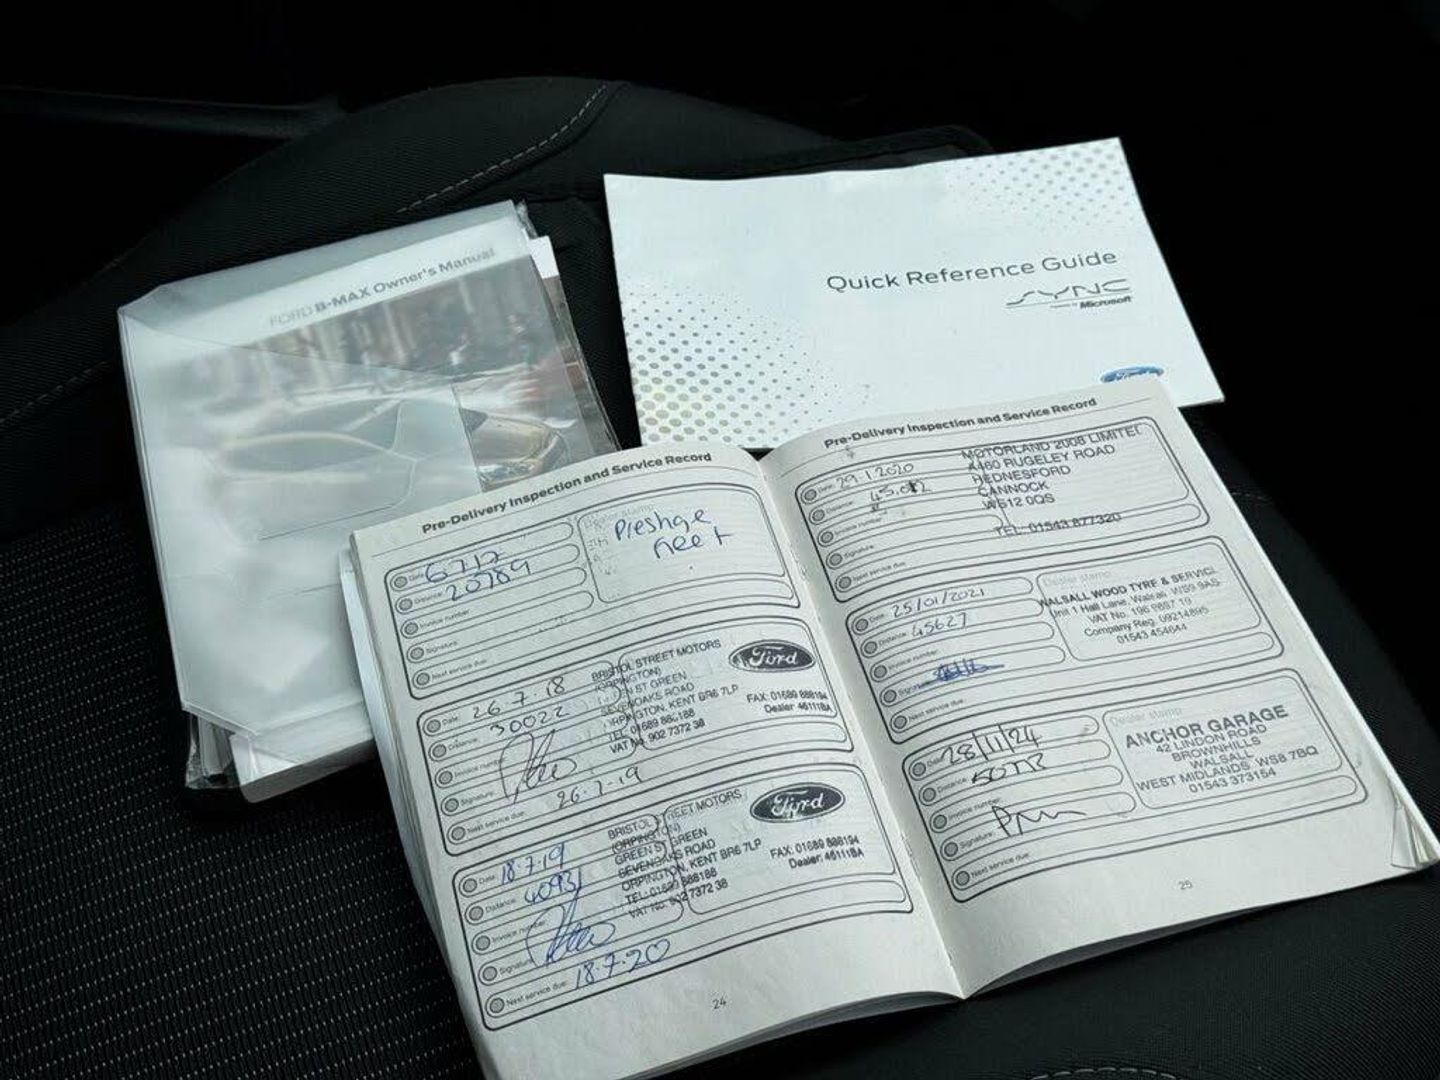 FORD B-MAX Owner's Manual
Quick Reference Guide
SYNC
Powered by Microsoft
Ford
Pre-Delivery Inspection and Service Record
Date: 6717
Distance: 20789
Invoice number:
Signature:
Next service due:
Dealer stamp
Prestige
neet
Date: 26.7.18
Distance: 30022
Invoice number:
Signature:
Next service due: 26-7-19
BRISTOL STREET MOTORS
(ORPINGTON)
GREEN ST GREEN
SEVENOAKS ROAD
ORPINGTON, KENT BR6 7LP
TEL: 01689 888188
VAT No. 902 7372 38
Ford
FAX: 01689 888194
Dealer: 46111BA
Date: 18.7.19
Distance: 40931
Invoice number:
Signature:
Next service due: 18.7.20
BRISTOL STREET MOTORS
(ORPINGTON)
GREEN ST GREEN
SEVENOAKS ROAD
ORPINGTON, KENT BR6 7LP
TEL: 01689 888188
VAT No. 902 7372 38
Ford
FAX: 01689 888194
Dealer: 46111BA
24
Pre-Delivery Inspection and Service Record
Date: 29.1.2020
Distance:
Invoice number:
Signature:
Next service due:
MOTORLAND 2008 LIMITED
A460 RUGELEY ROAD
HEDNESFORD
CANNOCK
WS12 0QS
TEL: 01543 877320
Date: 25/01/2021
Distance: 45627
Invoice number:
Signature:
Next service due:
Dealer stamp
WALSALL WOOD TYRE & SERVICE
Unit 1 Hall Lane, Walsall WS9 9AS
VAT No. 196 9897 19
Company Reg. 09214895
01543 454644
Date: 28/11/24
Distance:
Invoice number:
Signature:
Next service due:
Dealer stamp
ANCHOR GARAGE
42 LINDON ROAD
BROWNHILLS
WALSALL
WEST MIDLANDS WS8 7BQ
01543 373154
25